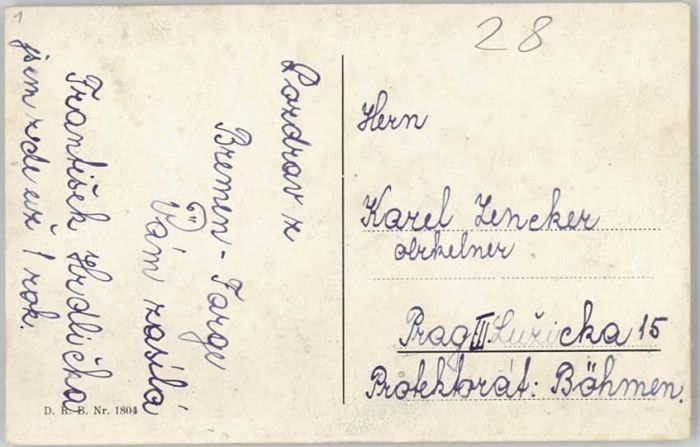 1
28
Pozdrav z
Bremen-Farge
Vám zasílá
František Hrdlička
jsem zde už 1 rok.
Hern
Karel Zencker
obrkelner
Prag III Lužicka 15
Protektorát: Böhmen.
D. R. B. Nr. 1804